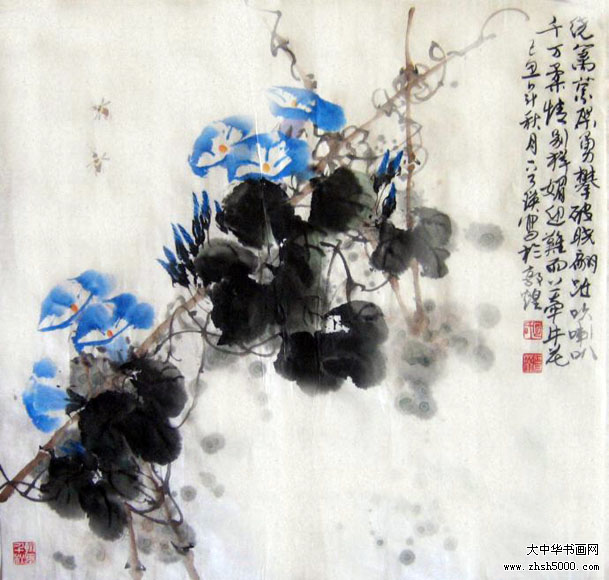 绕篱萦架勇攀破翩吹喇叭
千万柔情别样媚迎难而上牵牛花
己丑年秋月写于敦煌
大中华书画网
www.zhsh5000.com